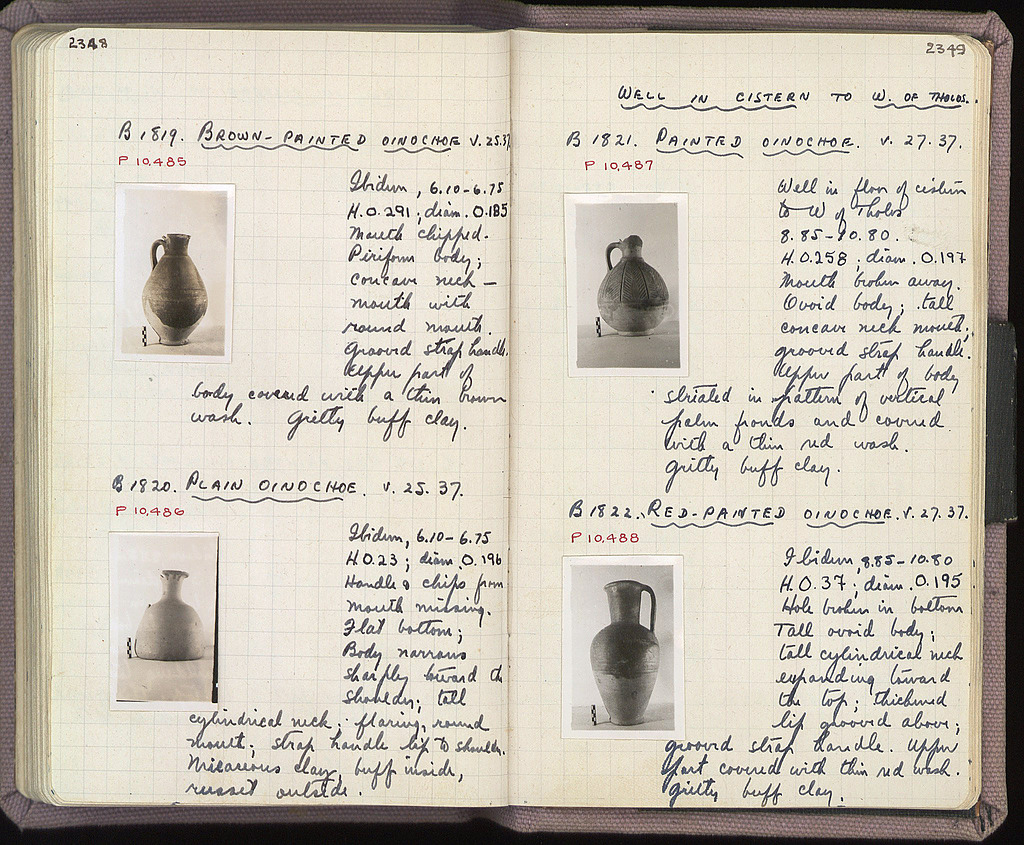 2348
B 1819. BROWN-PAINTED OINOCHOE V.25.37
P 10,485
Ibidem, 6.10-6.75
H.0.291; diam. 0.185
Mouth chipped.
Piriform body;
concave neck —
mouth with
round mouth.
Grooved strap handle.
Upper part of
body covered with a thin brown
wash. Gritty buff clay.
B 1820. PLAIN OINOCHOE. V. 25. 37.
P 10,486
Ibidem, 6.10-6.75
H.0.23; diam. 0.196
Handle & chips from
mouth missing.
Flat bottom;
Body narrows
sharply toward th
shoulder; tall
cylindrical neck; flaring, round
mouth; strap handle lip to shoulder.
Micaceous clay, buff inside,
russet outside.
2349
WELL IN CISTERN TO W. OF THOLOS.
B 1821. PAINTED OINOCHOE. V. 27.37.
P 10,487
Well in floor of cistern
to W of Tholos
8.85-10.80.
H.0.258; diam. 0.197
Mouth broken away.
Ovoid body; tall
concave neck mouth;
grooved strap handle.
Upper part of body
striated in pattern of vertical
palm fronds and covered
with a thin red wash.
Gritty buff clay.
B 1822. RED-PAINTED OINOCHOE. V. 27.37.
P 10,488
Ibidem, 8.85-10.80
H.0.37; diam. 0.195
Hole broken in bottom
Tall ovoid body;
tall cylindrical neck
expanding toward
the top; thickened
lip grooved above;
grooved strap handle. Upper
part covered with thin red wash.
Gritty buff clay.